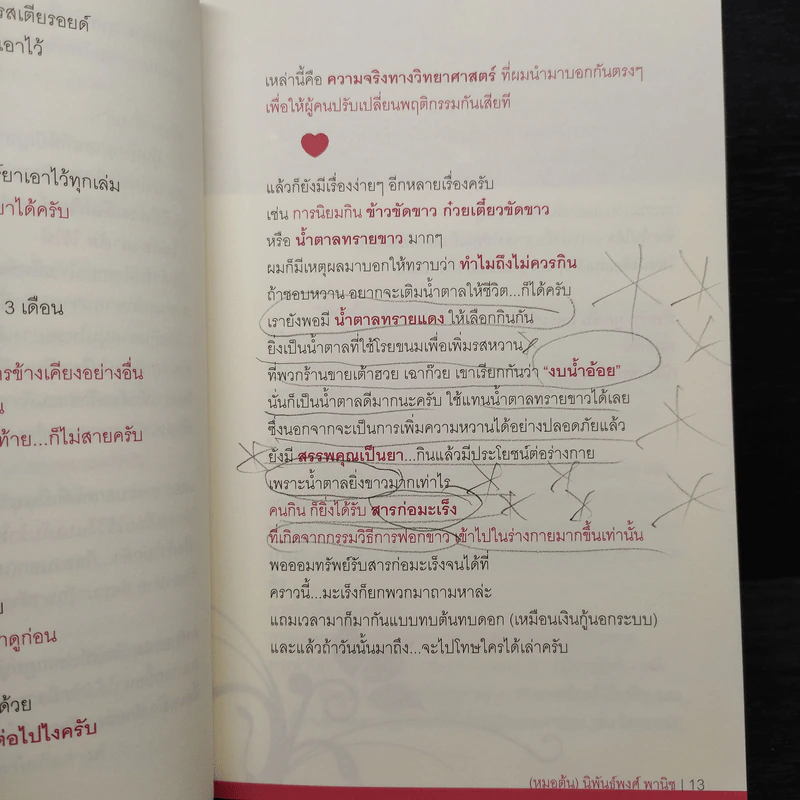 รสเตียรอยด์
เอาไว้
ยาเอาไว้ทุกเล่ม
ยาได้ครับ
3 เดือน
ารข้างเคียงอย่างอื่น
น
ท้าย...ก็ไม่สายครับ
าดูก่อน
ด้วย
ต่อไปไงครับ
เหล่านี้คือ ความจริงทางวิทยาศาสตร์ ที่ผมนำมาบอกกันตรงๆ
เพื่อให้ผู้คนปรับเปลี่ยนพฤติกรรมกันเสียที
แล้วก็ยังมีเรื่องง่ายๆ อีกหลายเรื่องครับ
เช่น การนิยมกิน ข้าวขัดขาว ก๋วยเตี๋ยวขัดขาว
หรือ น้ำตาลทรายขาว มากๆ
ผมก็มีเหตุผลมาบอกให้ทราบว่า ทำไมถึงไม่ควรกิน
ถ้าชอบหวาน อยากจะเติมน้ำตาลให้ชีวิต...ก็ได้ครับ
เรายังพอมี น้ำตาลทรายแดง ให้เลือกกินกัน
ยิ่งเป็นน้ำตาลที่ใช้โรยขนมเพื่อเพิ่มรสหวาน
ที่พวกร้านขายเต้าฮวย เฉาก๊วย เขาเรียกกันว่า "งบน้ำอ้อย"
นั่นก็เป็นน้ำตาลดีมากนะครับ ใช้แทนน้ำตาลทรายขาวได้เลย
ซึ่งนอกจากจะเป็นการเพิ่มความหวานได้อย่างปลอดภัยแล้ว
ยังมี สรรพคุณเป็นยา...กินแล้วมีประโยชน์ต่อร่างกาย
เพราะน้ำตาลยิ่งขาวมากเท่าไร
คนกิน ก็ยิ่งได้รับ สารก่อมะเร็ง
ที่เกิดจากกรรมวิธีการฟอกขาว เข้าไปในร่างกายมากขึ้นเท่านั้น
พอออมทรัพย์รับสารก่อมะเร็งจนได้ที่
คราวนี้...มะเร็งก็ยกพวกมาถามหาล่ะ
แถมเวลามาก็มากันแบบทบต้นทบดอก (เหมือนเงินกู้นอกระบบ)
และแล้วถ้าวันนั้นมาถึง...จะไปโทษใครได้เล่าครับ
(หมอต้น) นิพันธ์พงศ์ พานิช | 13